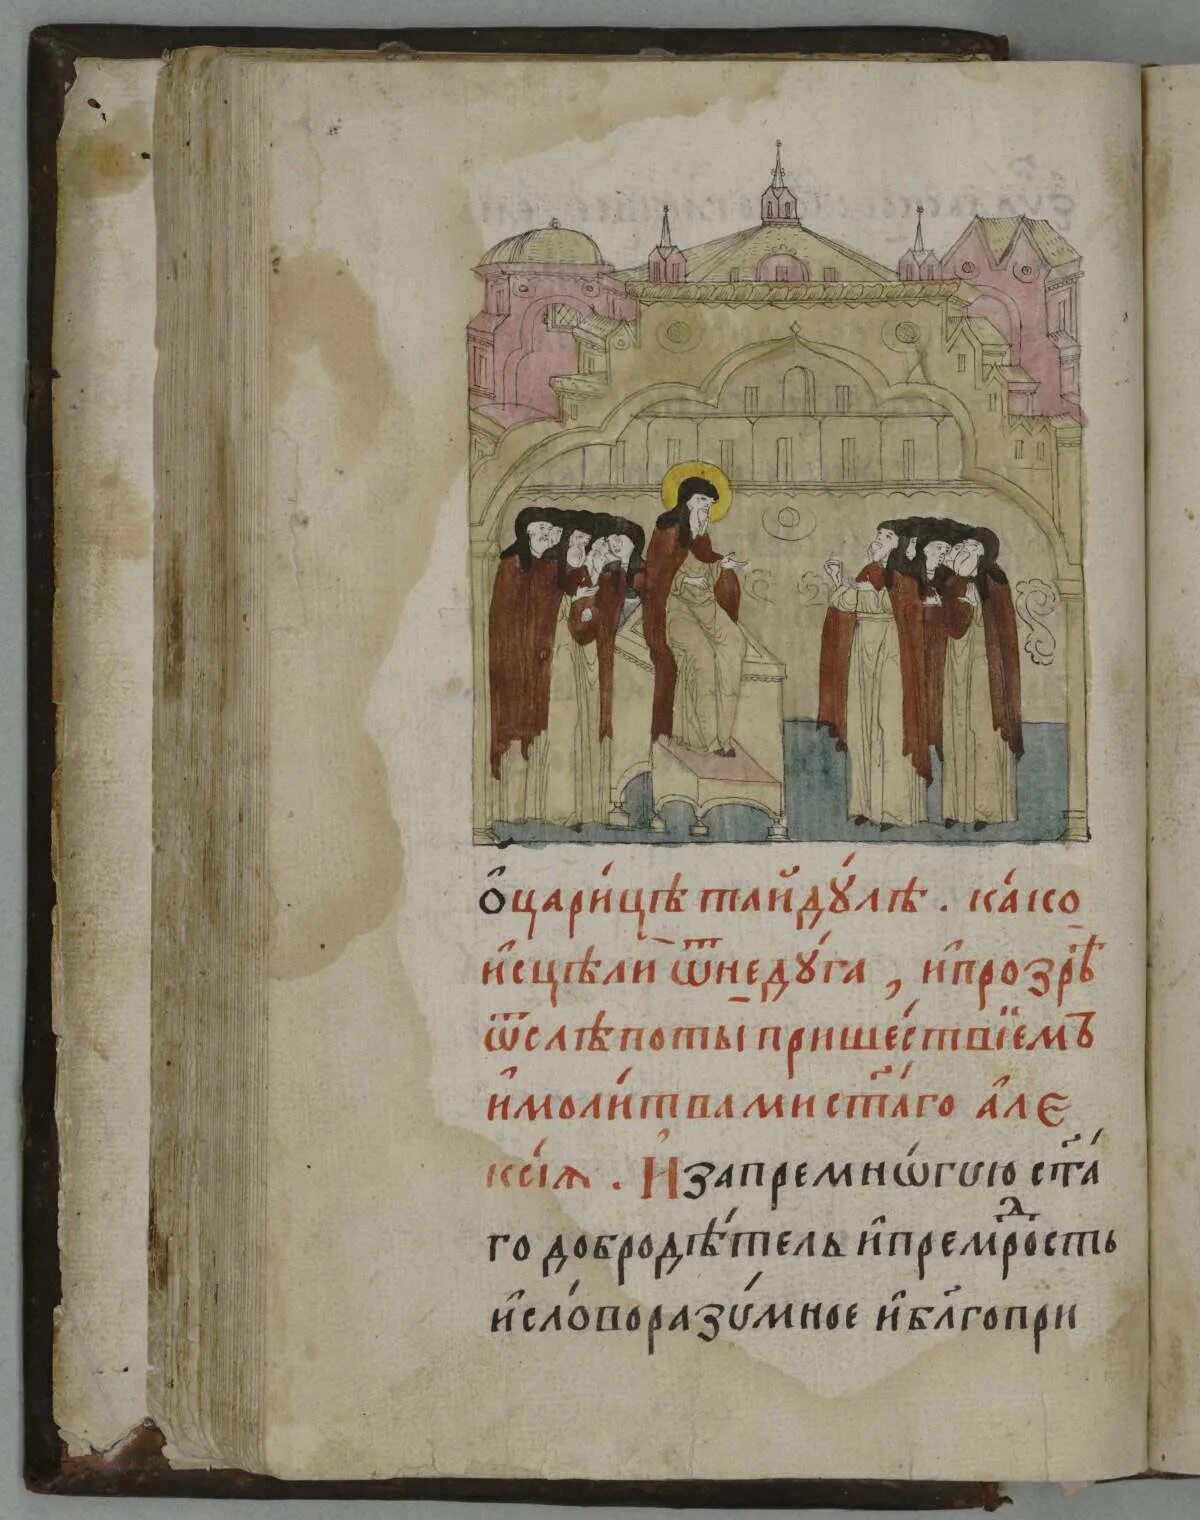 Ѻ҆ цари́цѣ тайдꙋ́лѣ. ка́ко
и҆сцѣлѝ ѿ недꙋ́га, и҆ прозрѣ̀
ѿ слѣпоты̀ прише́ствїемъ
и҆ моли́твами ст҃а́го а҆ле
ѯі́а. И҆ за премнѡгꙋю ст҃а́
го добродѣ́тель и҆ премⷣрость
и҆ сло́во разꙋ́мное и҆ бл҃гопри